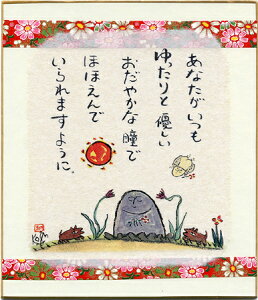 あなたがいつも
ゆったりと優しい
おだやかな瞳で
ほほえんで
いられますように。